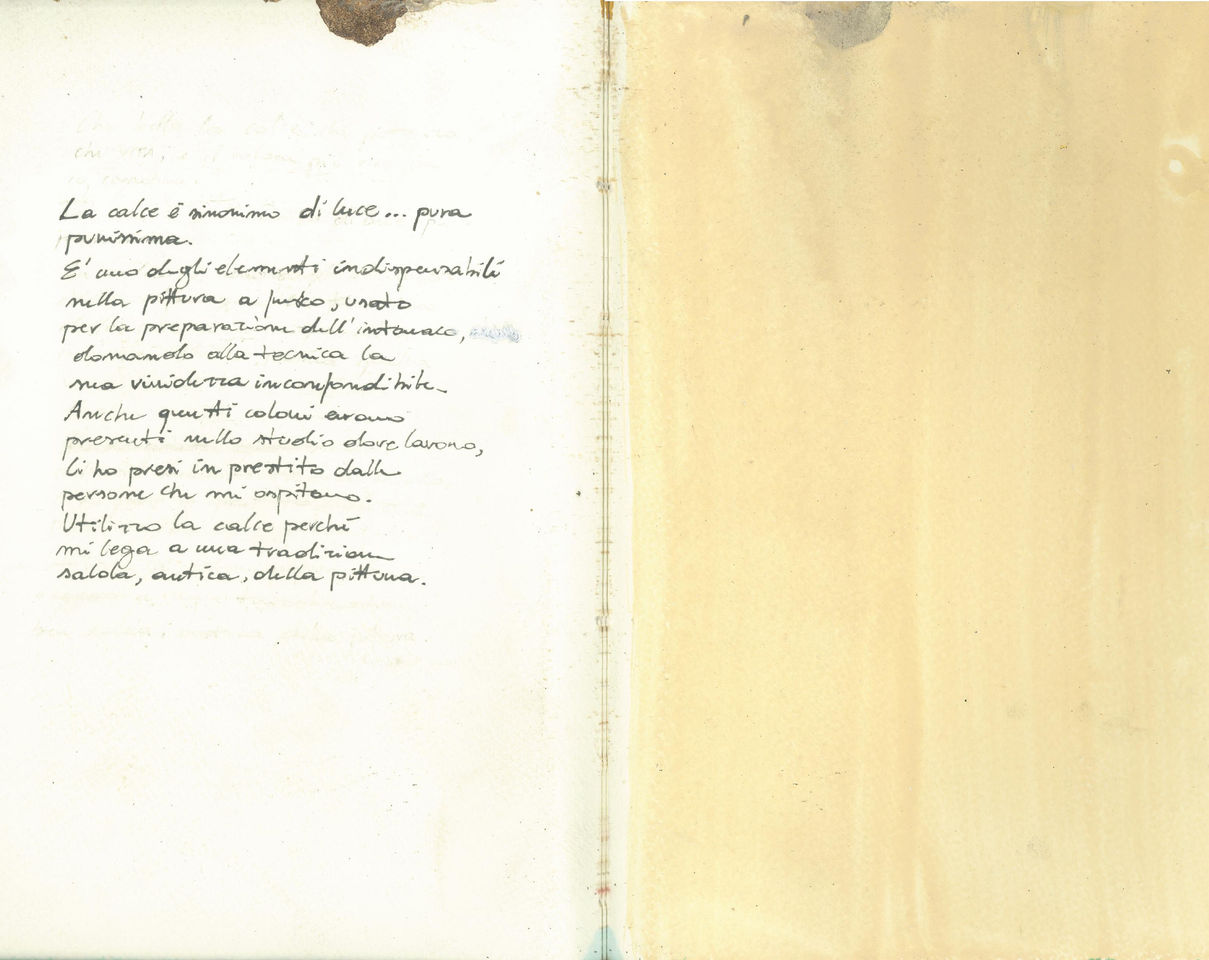 La calce è sinonimo di luce... pura
purissima.
E' uno degli elementi indispensabili
nella pittura a fresco, usato
per la preparazione dell'intonaco,
donando alla tecnica la
sua vividezza inconfondibile.
Anche questi colori erano
presenti nello studio dove lavoro,
li ho presi in prestito dalle
persone che mi ospitano.
Utilizzo la calce perché
mi lega a una tradizione
salda, antica, della pittura.